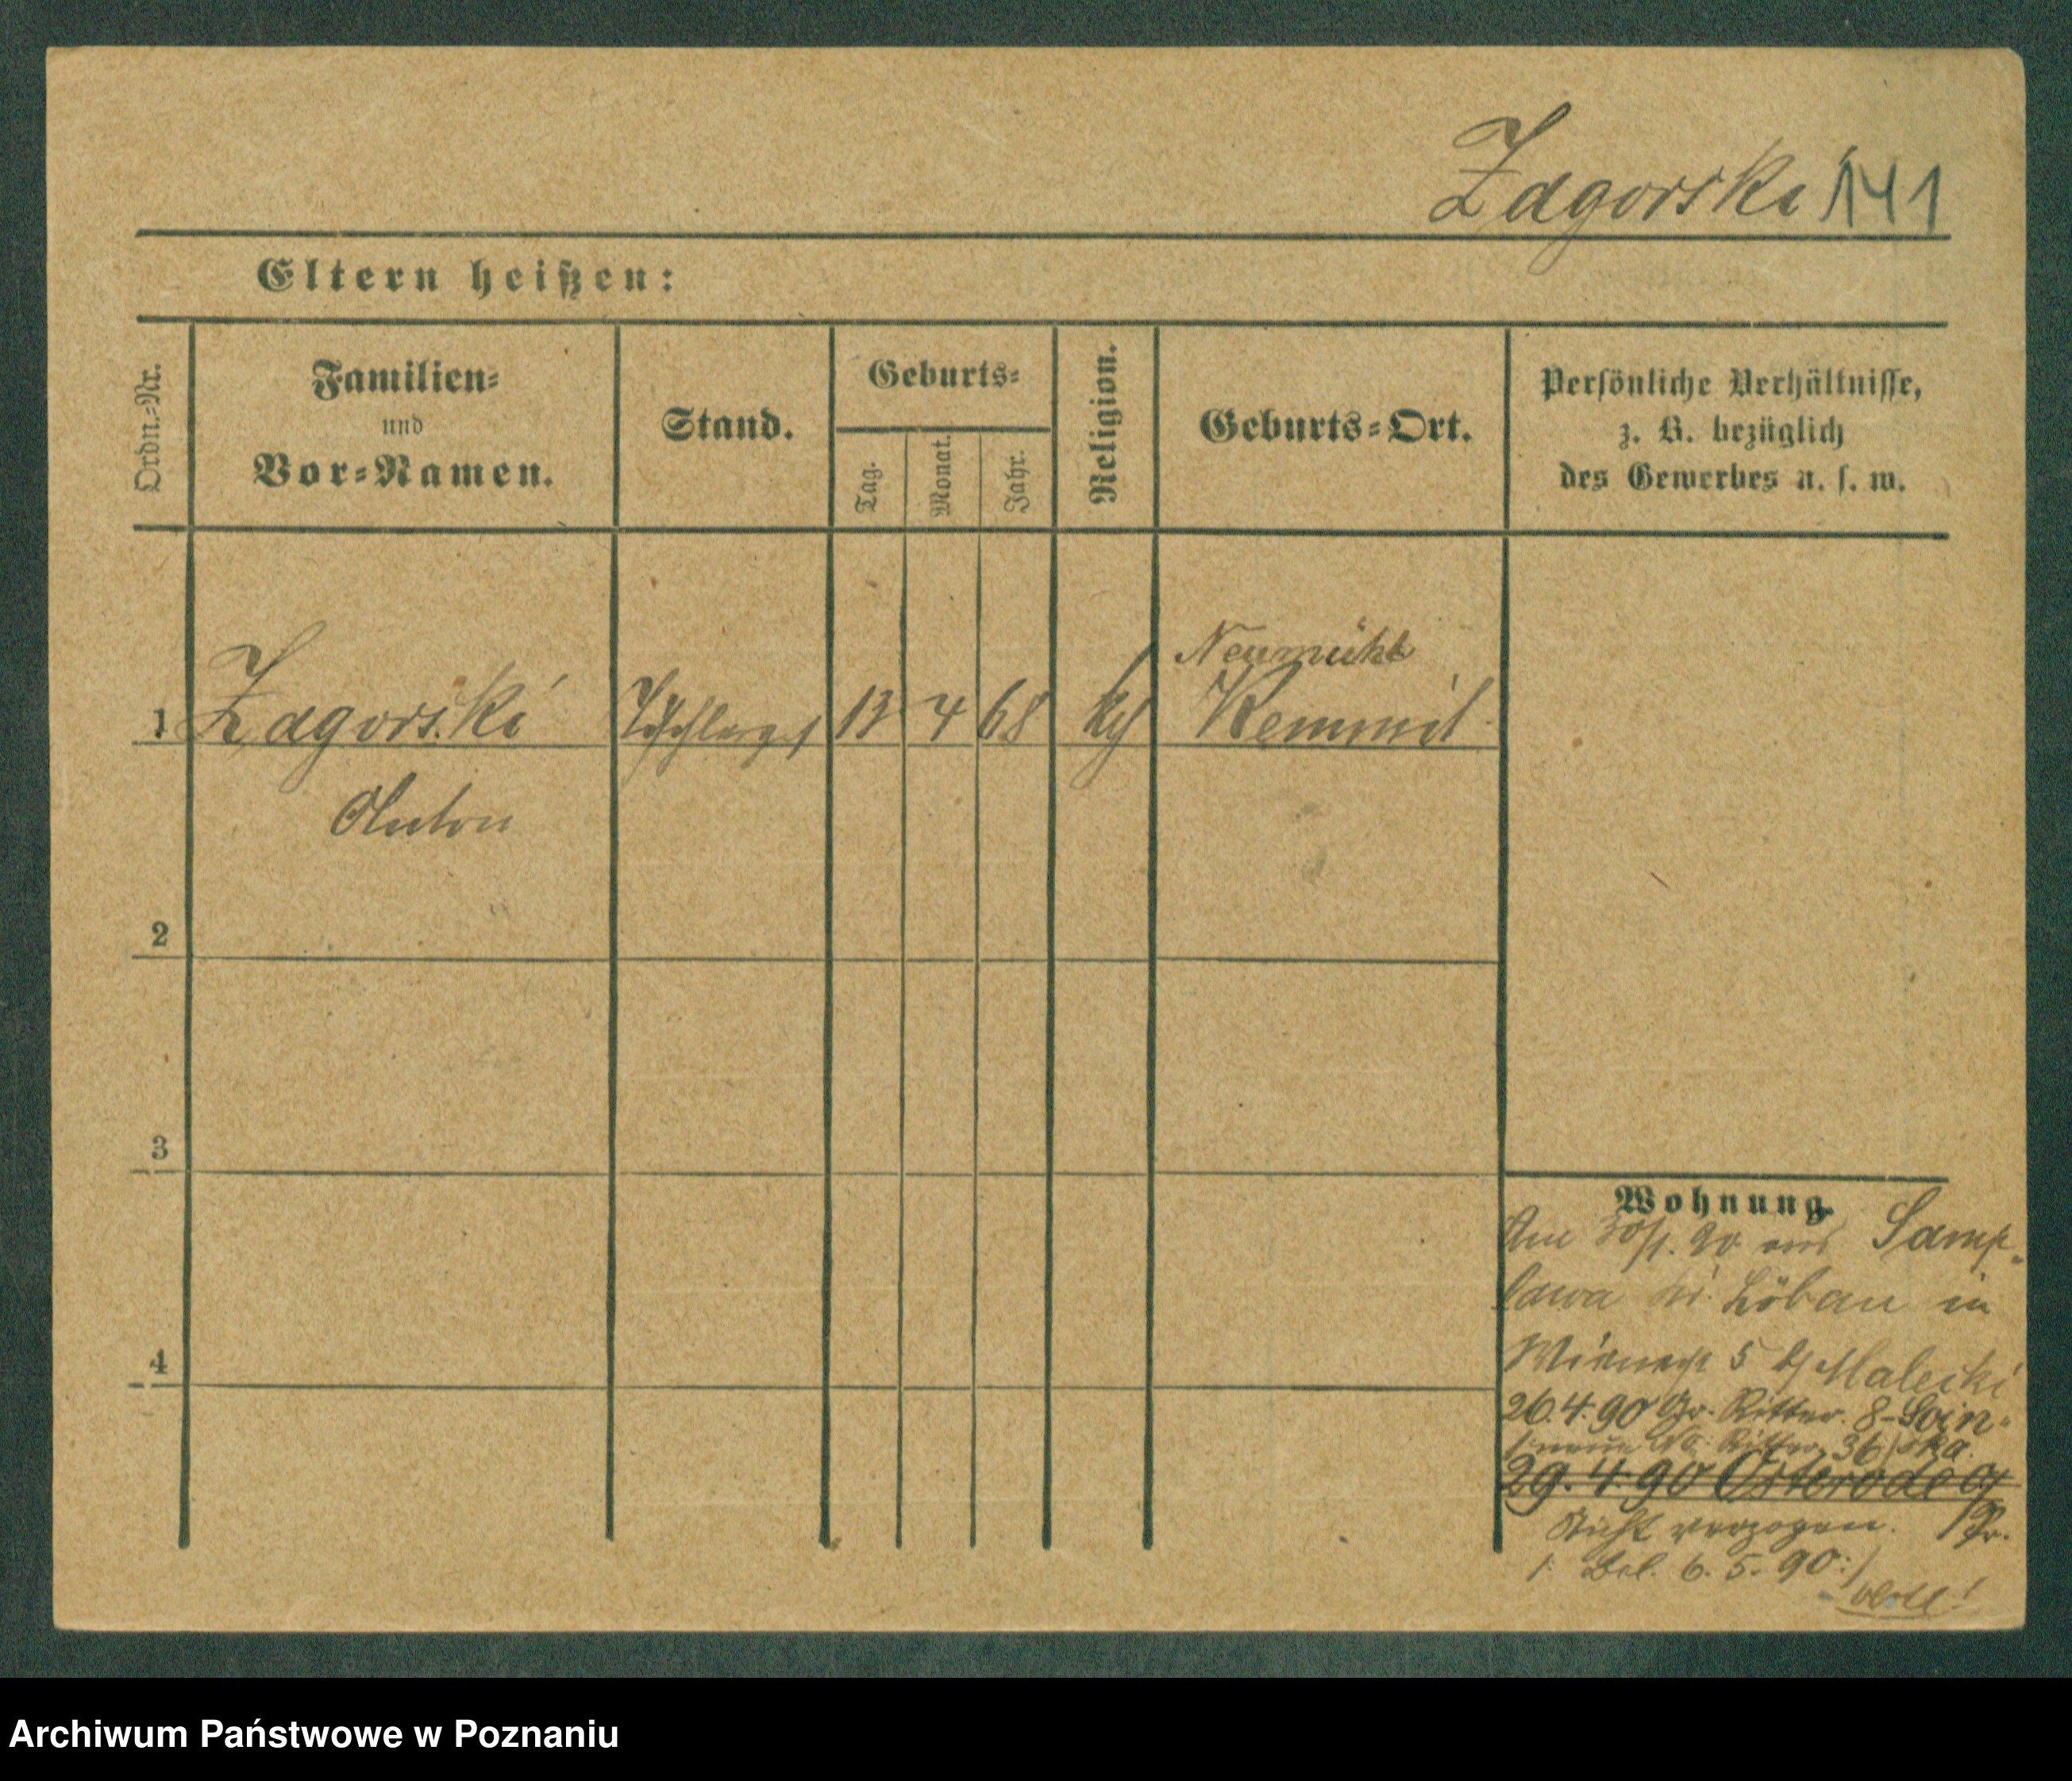 Zagorski 141
Eltern heißen:
Ordn.-Nr.
Familien-
und
Vor-Namen.
Stand.
Geburts-
Tag.
Monat.
Jahr.
Religion.
Geburts-Ort.
Persönliche Verhältnisse,
z. B. bezüglich
des Gewerbes u. s. w.
Neumühl
1 Zagorski 13 4 68 kth
Anton
2
3
4
Wohnung.
Am 30/1. 90 aus Samp-
lawa Kr. Löbau in
5 b/ Malecki
26.4.90 Gr. Ritter. 8-
neue No. Ritter 36
29.4.90 Osterode
Nicht verzogen.
/: Bel. 6. 5. 90:/
Archiwum Państwowe w Poznaniu